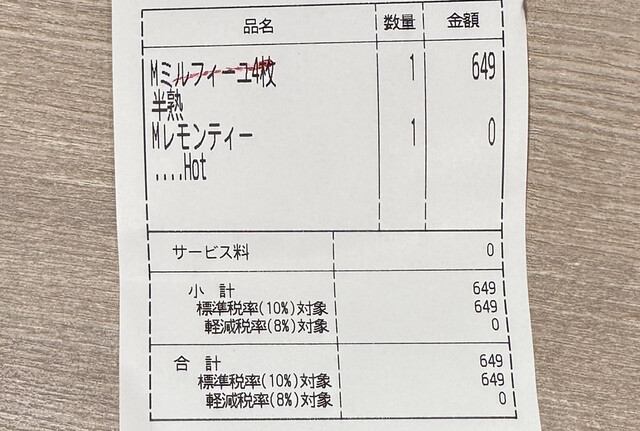 品名 数量 金額
Mミルフィーユ4枚 1 649
半熟
Mレモンティー 1 0
....Hot
サービス料 0
小 計 649
標準税率(10%)対象 649
軽減税率(8%)対象 0
合 計 649
標準税率(10%)対象 649
軽減税率(8%)対象 0